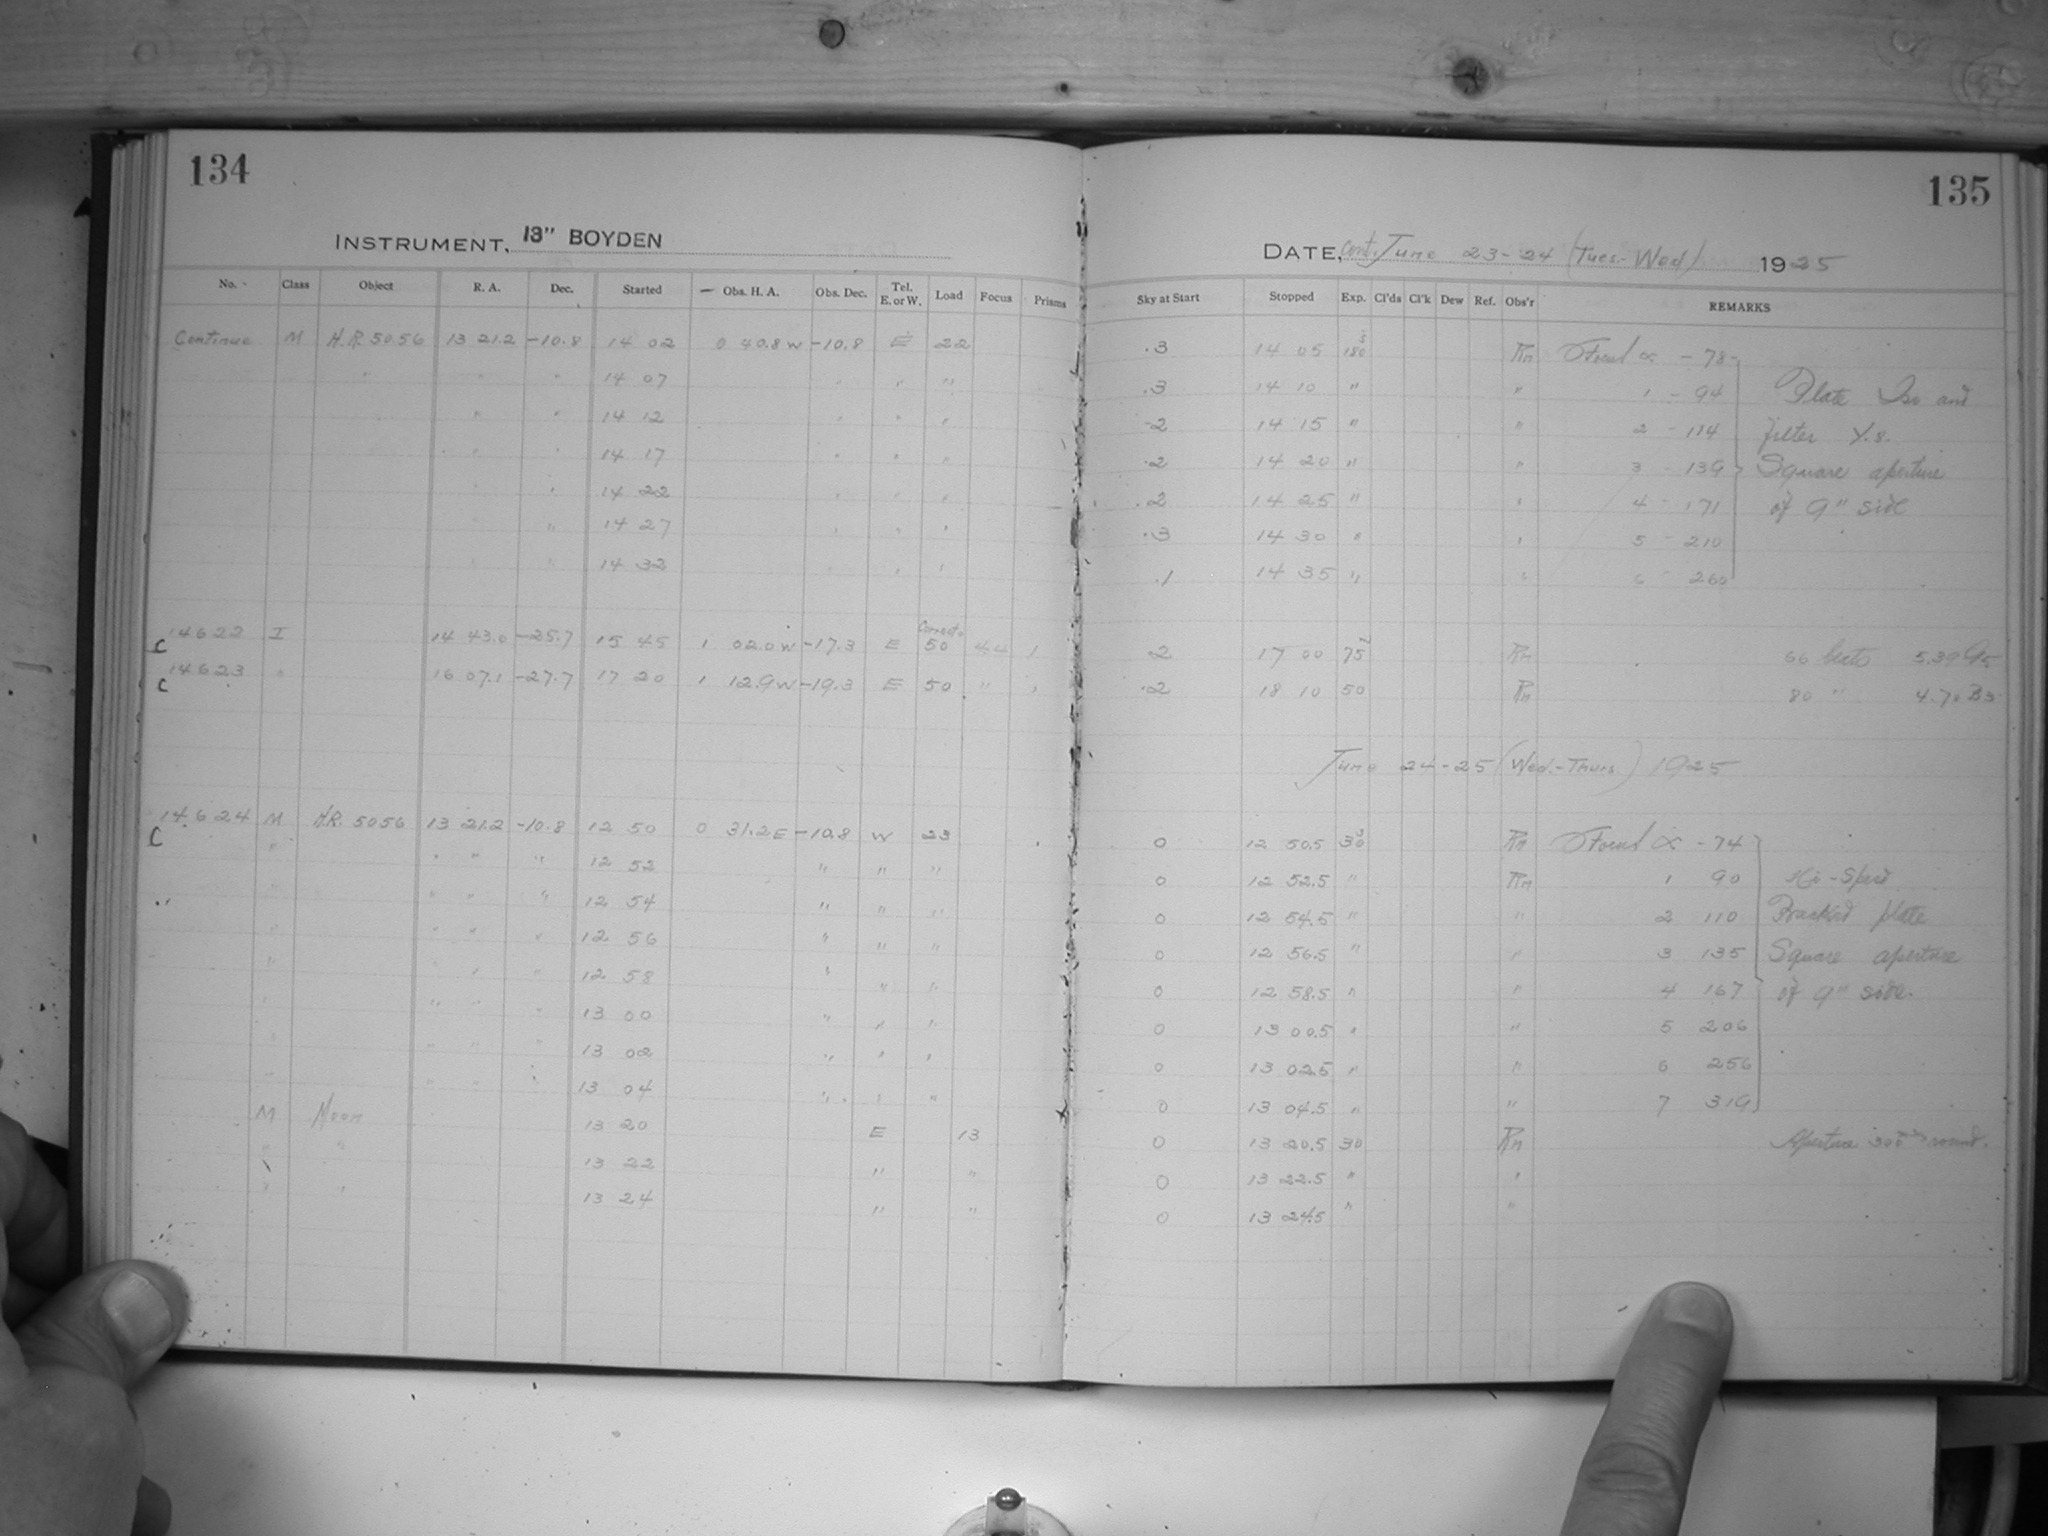 134
INSTRUMENT, 13" BOYDEN
No. Class Object R. A. Dec. Started — Obs. H. A. Obs. Dec. Tel. E. or W. Load Focus Prisms
Continue M H.R. 5056 13 21.2 -10.8 14 02 0 40.8 W -10.8 E 22
" " " 14 07 " " "
" " " 14 12 " " "
" " 14 17 " " "
" " 14 22 " " "
" 14 27 " " "
" 14 32 " " "
14622 I 14 43.0 -25.7 15 45 1 02.0 W -17.3 E 50 44 1
C
14623 " 16 07.1 -27.7 17 20 1 12.9 W -19.3 E 50 " "
C
14624 M H.R. 5056 13 21.2 -10.8 12 50 0 31.2 E -10.8 W 23
C
" " " " 12 52 " " "
" " " " 12 54 " " "
" " " " 12 56 " " "
" " " " 12 58 " " "
" " " " 13 00 " " "
" " " " 13 02 " " "
" " " " 13 04 " " "
M Moon 13 20 E 13
" " 13 22 " "
" " 13 24 " "
135
DATE, Cont. June 23-24 (Tues.-Wed) 1925
Sky at Start Stopped Exp. Cl'ds Cl'k Dew Ref. Obs'r REMARKS
.3 14 05 180s Rn Focus ∝ - 78
.3 14 10 " " 1 - 94 Plate Iso and
.2 14 15 " " 2 - 114 filter Y.8.
.2 14 20 " " 3 - 139 Square aperture
.2 14 25 " " 4 - 171 of 9" side
.3 14 30 " " 5 - 210
.1 14 35 " " 6 260
.2 17 00 75 Rn 66 5.39 G5
.2 18 10 50 Rn 80 " 4.70 B3
June 24-25 (Wed.-Thurs.) 1925
0 12 50.5 30s Rn Focus ∝ - 74
0 12 52.5 " Rn 1 90 Hi-Speed
0 12 54.5 " " 2 110 Backed plate
0 12 56.5 " " 3 135 Square aperture
0 12 58.5 " " 4 167 of 9" side.
0 13 00.5 " " 5 206
0 13 02.5 " " 6 256
0 13 04.5 " " 7 319
0 13 20.5 30 Rn Aperture round.
0 13 22.5 " "
0 13 24.5 " "